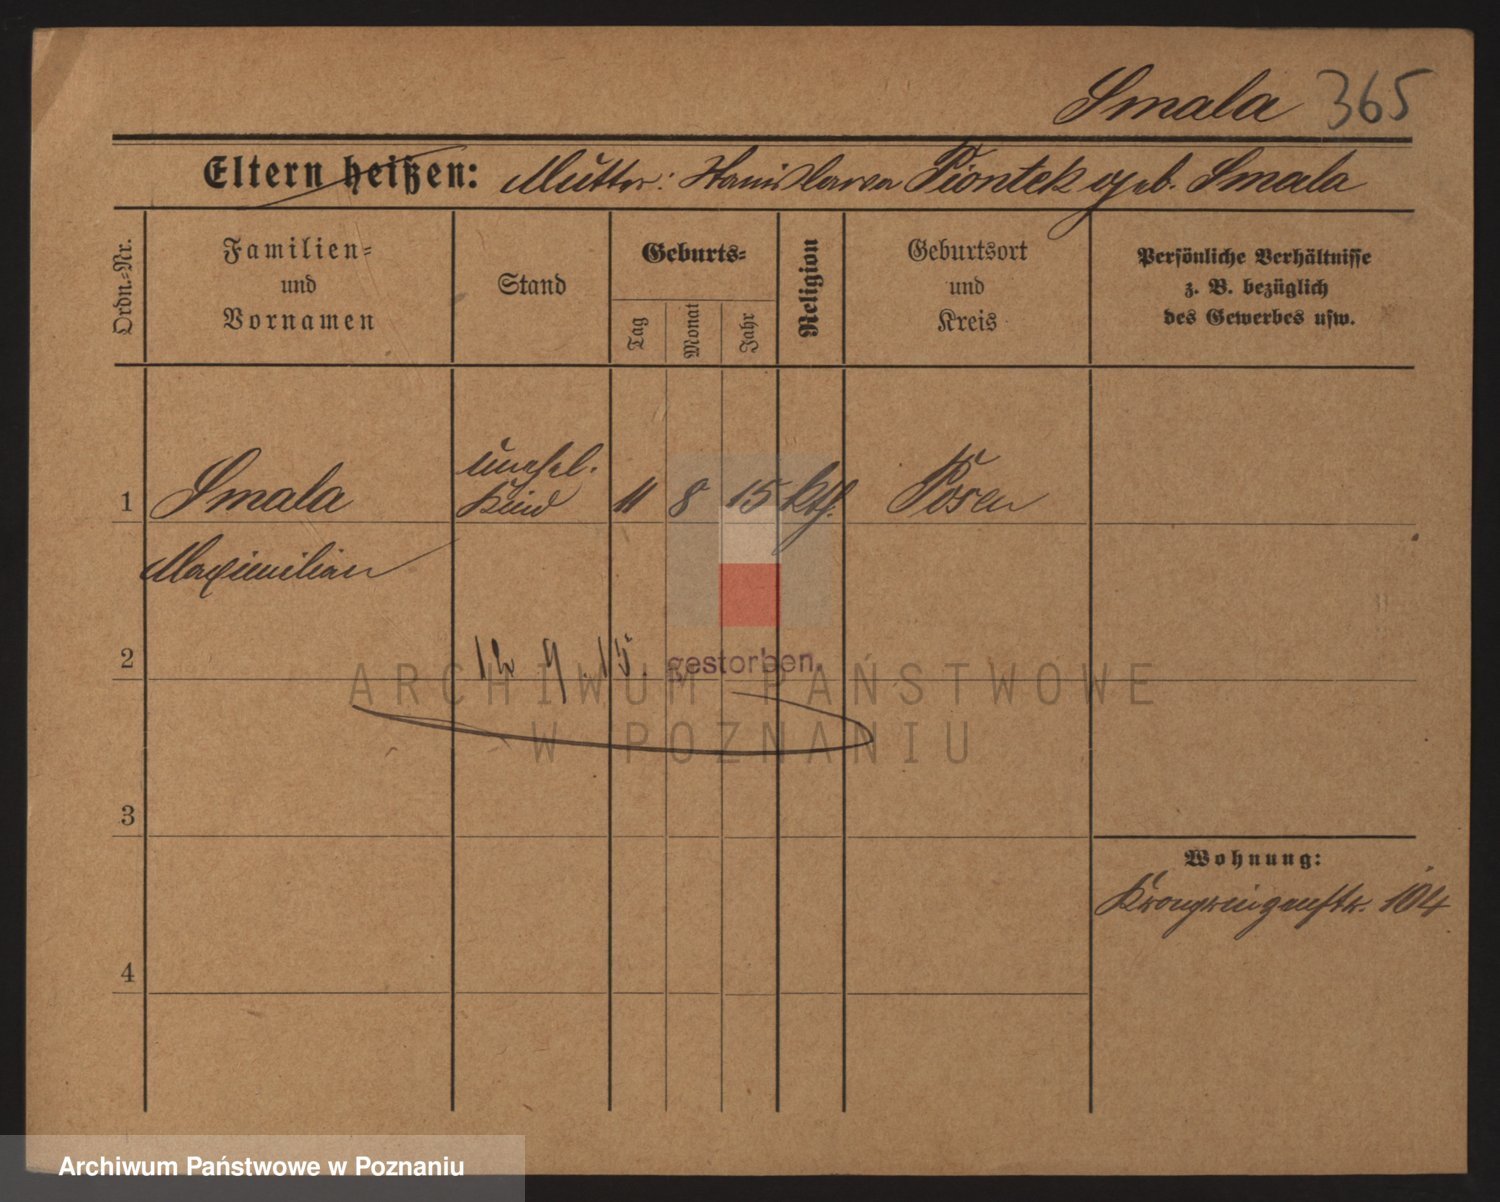 Smala 365
Eltern heißen: Mutter: Stanislawa Piontek geb. Smala
Ordn.-Nr.
Familien-
und
Vornamen
Stand
Geburts-
Tag
Monat
Jahr
Religion
Geburtsort
und
Kreis
Persönliche Verhältnisse
z. B. bezüglich
des Gewerbes usw.
unehel.
1 Smala Kind 11 8 15 kth. Posen
Maximilian
2 12 9. 15. gestorben.
ARCHIWUM PAŃSTWOWE
W POZNANIU
3
Wohnung:
Kronprinzenstr. 104
4
Archiwum Państwowe w Poznaniu